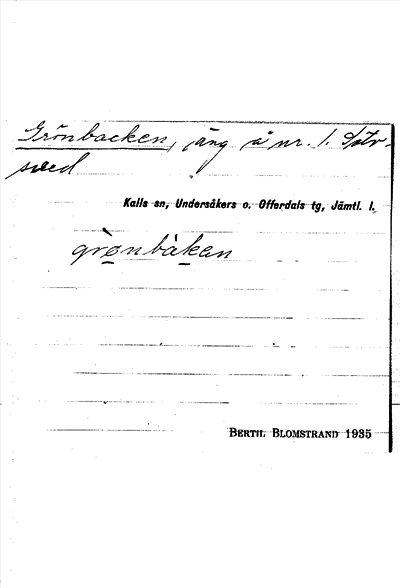 Grönbacken, äng å nr. 1. Sötv-
sved
Kalls sn, Undersåkers o. Offerdals tg, Jämtl. l.
grø̀nbàkan
BERTIL BLOMSTRAND 1935